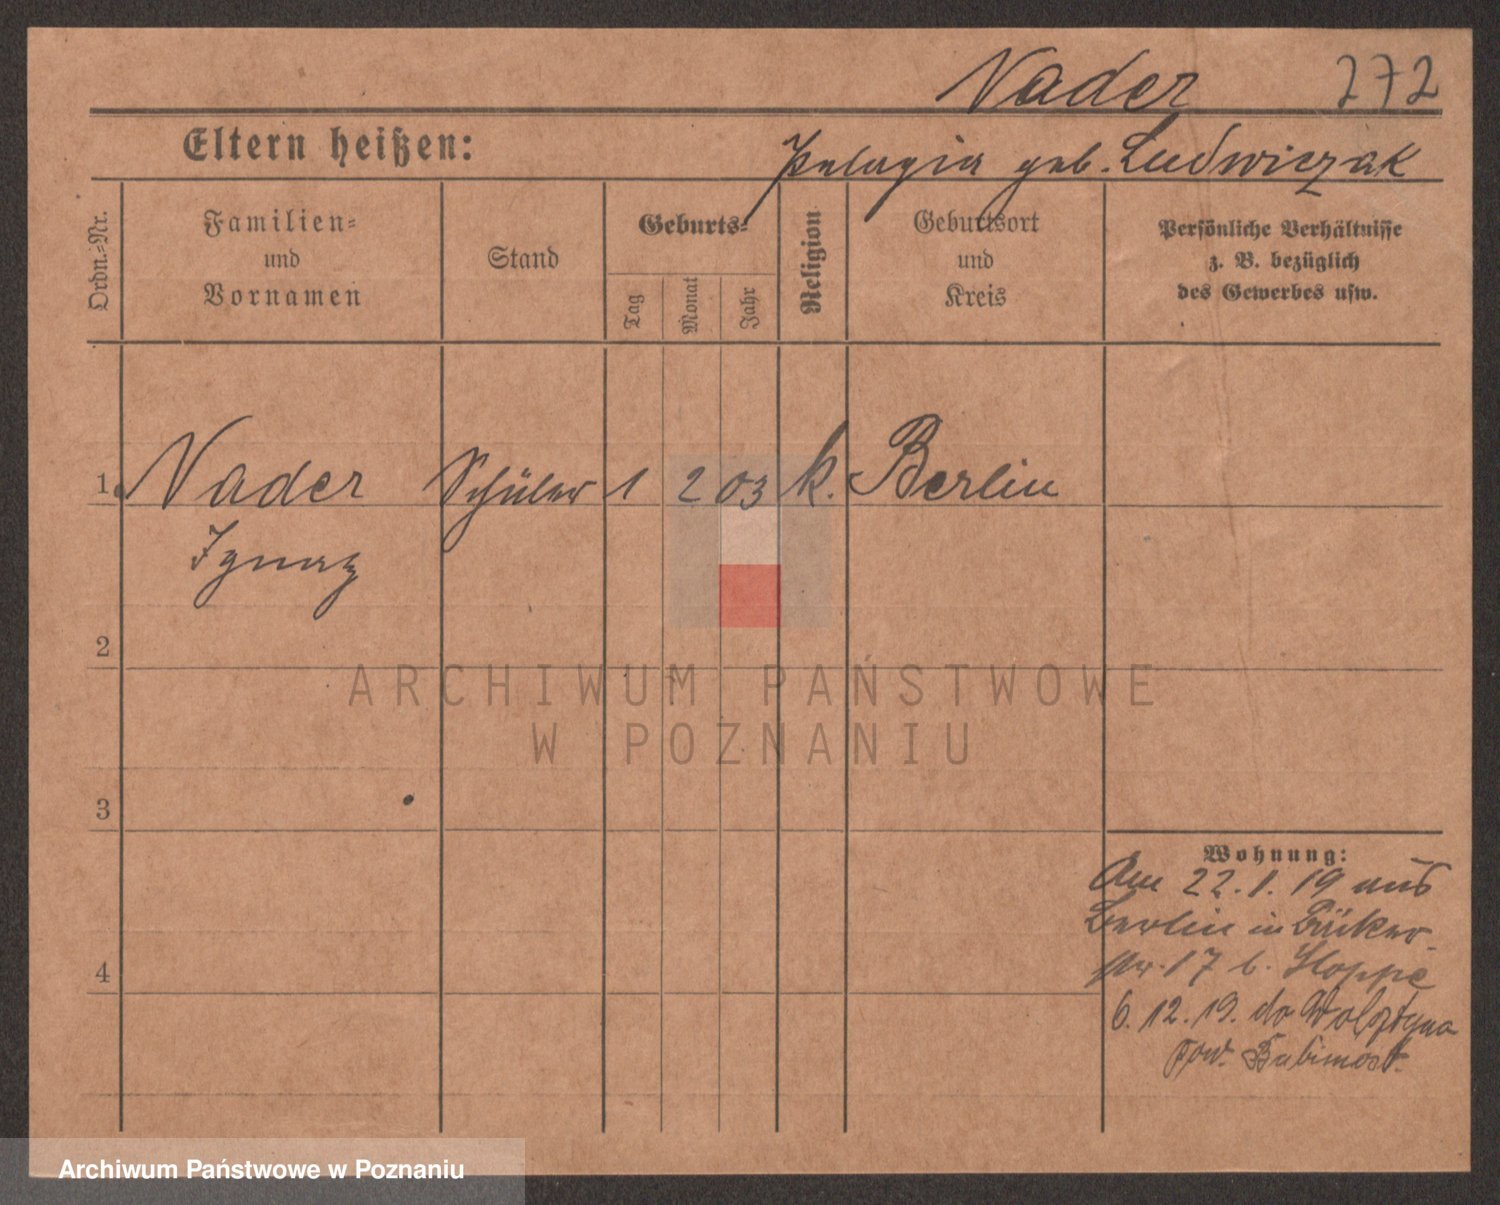 Nader 272
Eltern heißen:
Pelagia geb. Ludwiczak
Ordn.-Nr.
Familien-
und
Vornamen
Stand
Geburts-
Tag
Monat
Jahr
Religion
Geburtsort
und
Kreis
Persönliche Verhältnisse
z. B. bezüglich
des Gewerbes usw.
1. Nader Schüler 1 2 03 k. Berlin
Ignaz
2
ARCHIWUM PAŃSTWOWE
W POZNANIU
3
Wohnung:
Am 22.1.19 aus
Berlin in Bäker-
str. 17 b. Hoppe
4
6.12.19. do Wolsztyna
pow. Babimost.
Archiwum Państwowe w Poznaniu